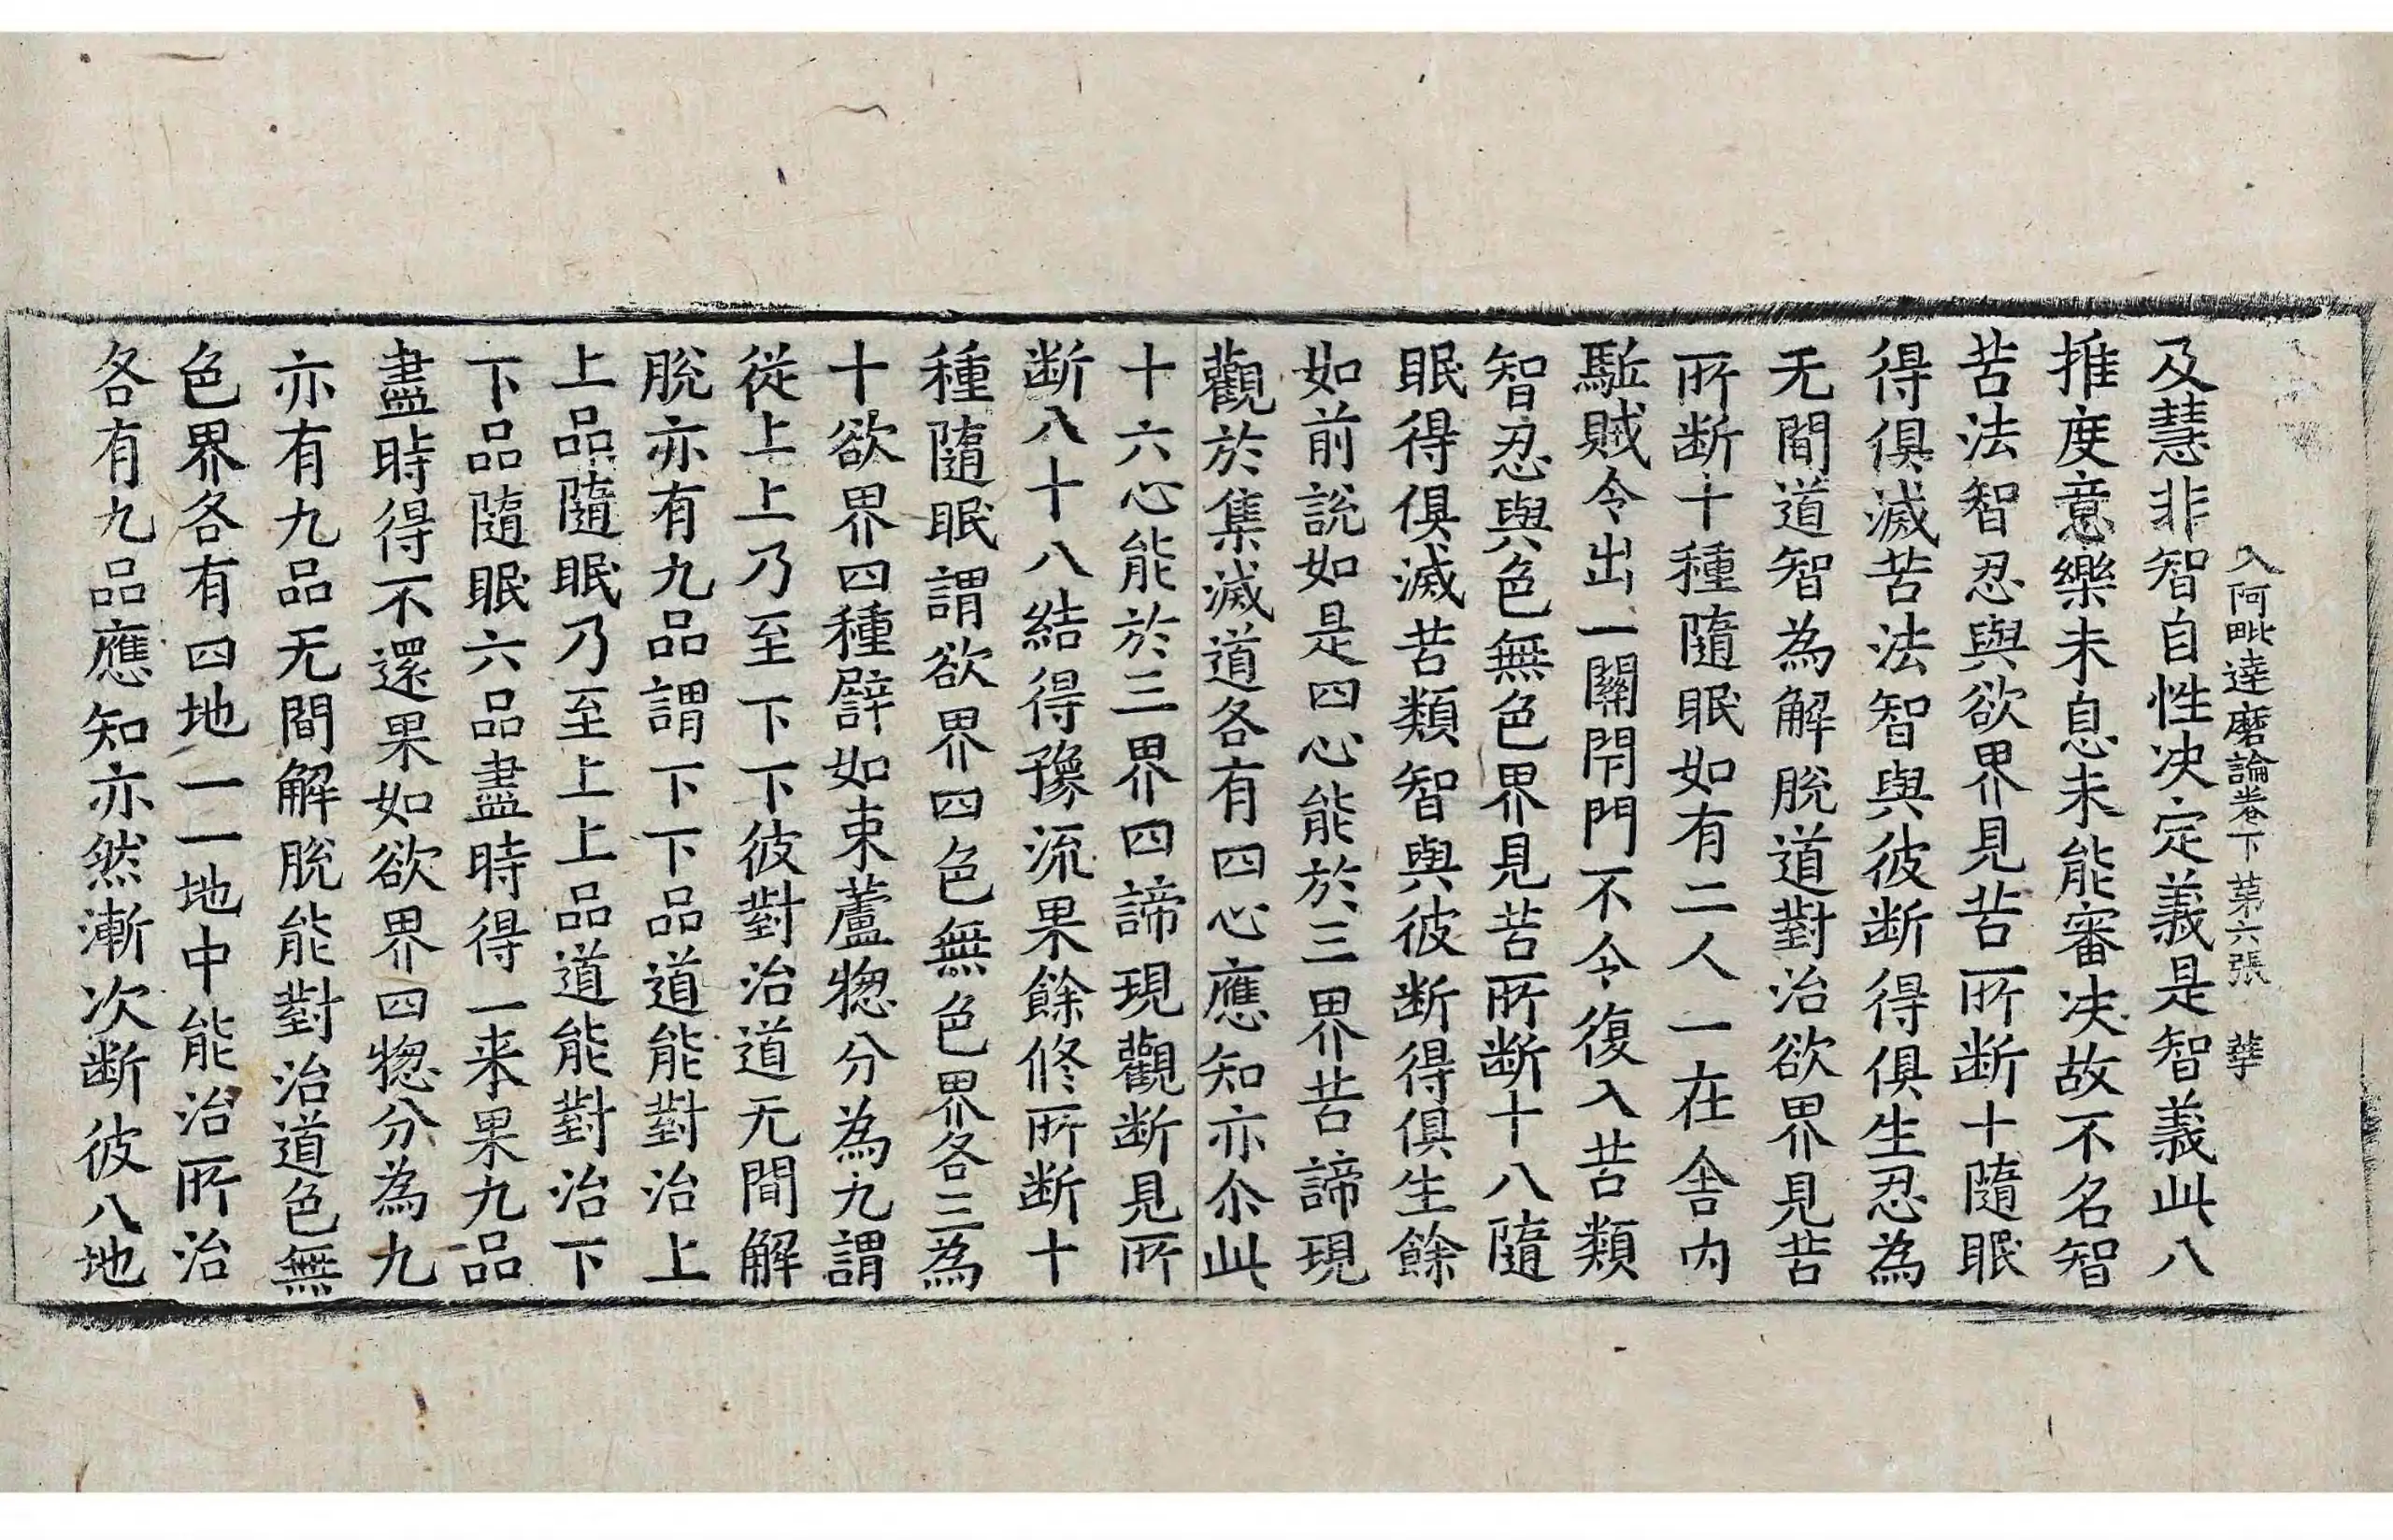 入阿毗達磨論卷下 苐六張 𦶎
及慧非智自性决定義是智義此八
推度意樂未息未能審决故不名智
苦法智忍與欲界見苦所断十隨眠
得俱滅苦法智與彼断得俱生忍為
无間道智為解脫道對治欲界見苦
所断十種隨眠如有二人一在舍內
駈賊令出一關閇門不令復入苦類
智忍與色無色界見苦所断十八隨
眠得俱滅苦類智與彼断得俱生餘
如前說如是四心能於三界苦諦現
觀於集滅道各有四心應知亦尒此
十六心能於三界四諦現觀断見所
断八十八結得豫流果餘修所断十
種隨眠謂欲界四色無色界各三為
十欲界四種譬如束蘆惣分為九謂
從上上乃至下下彼對治道无間解
脫亦有九品謂下下品道能對治上
上品隨眠乃至上上品道能對治下
下品隨眠六品盡時得一来果九品
盡時得不還果如欲界四惣分為九
亦有九品无間解脫能對治道色無
色界各有四地一一地中能治所治
各有九品應知亦然漸次断彼八地